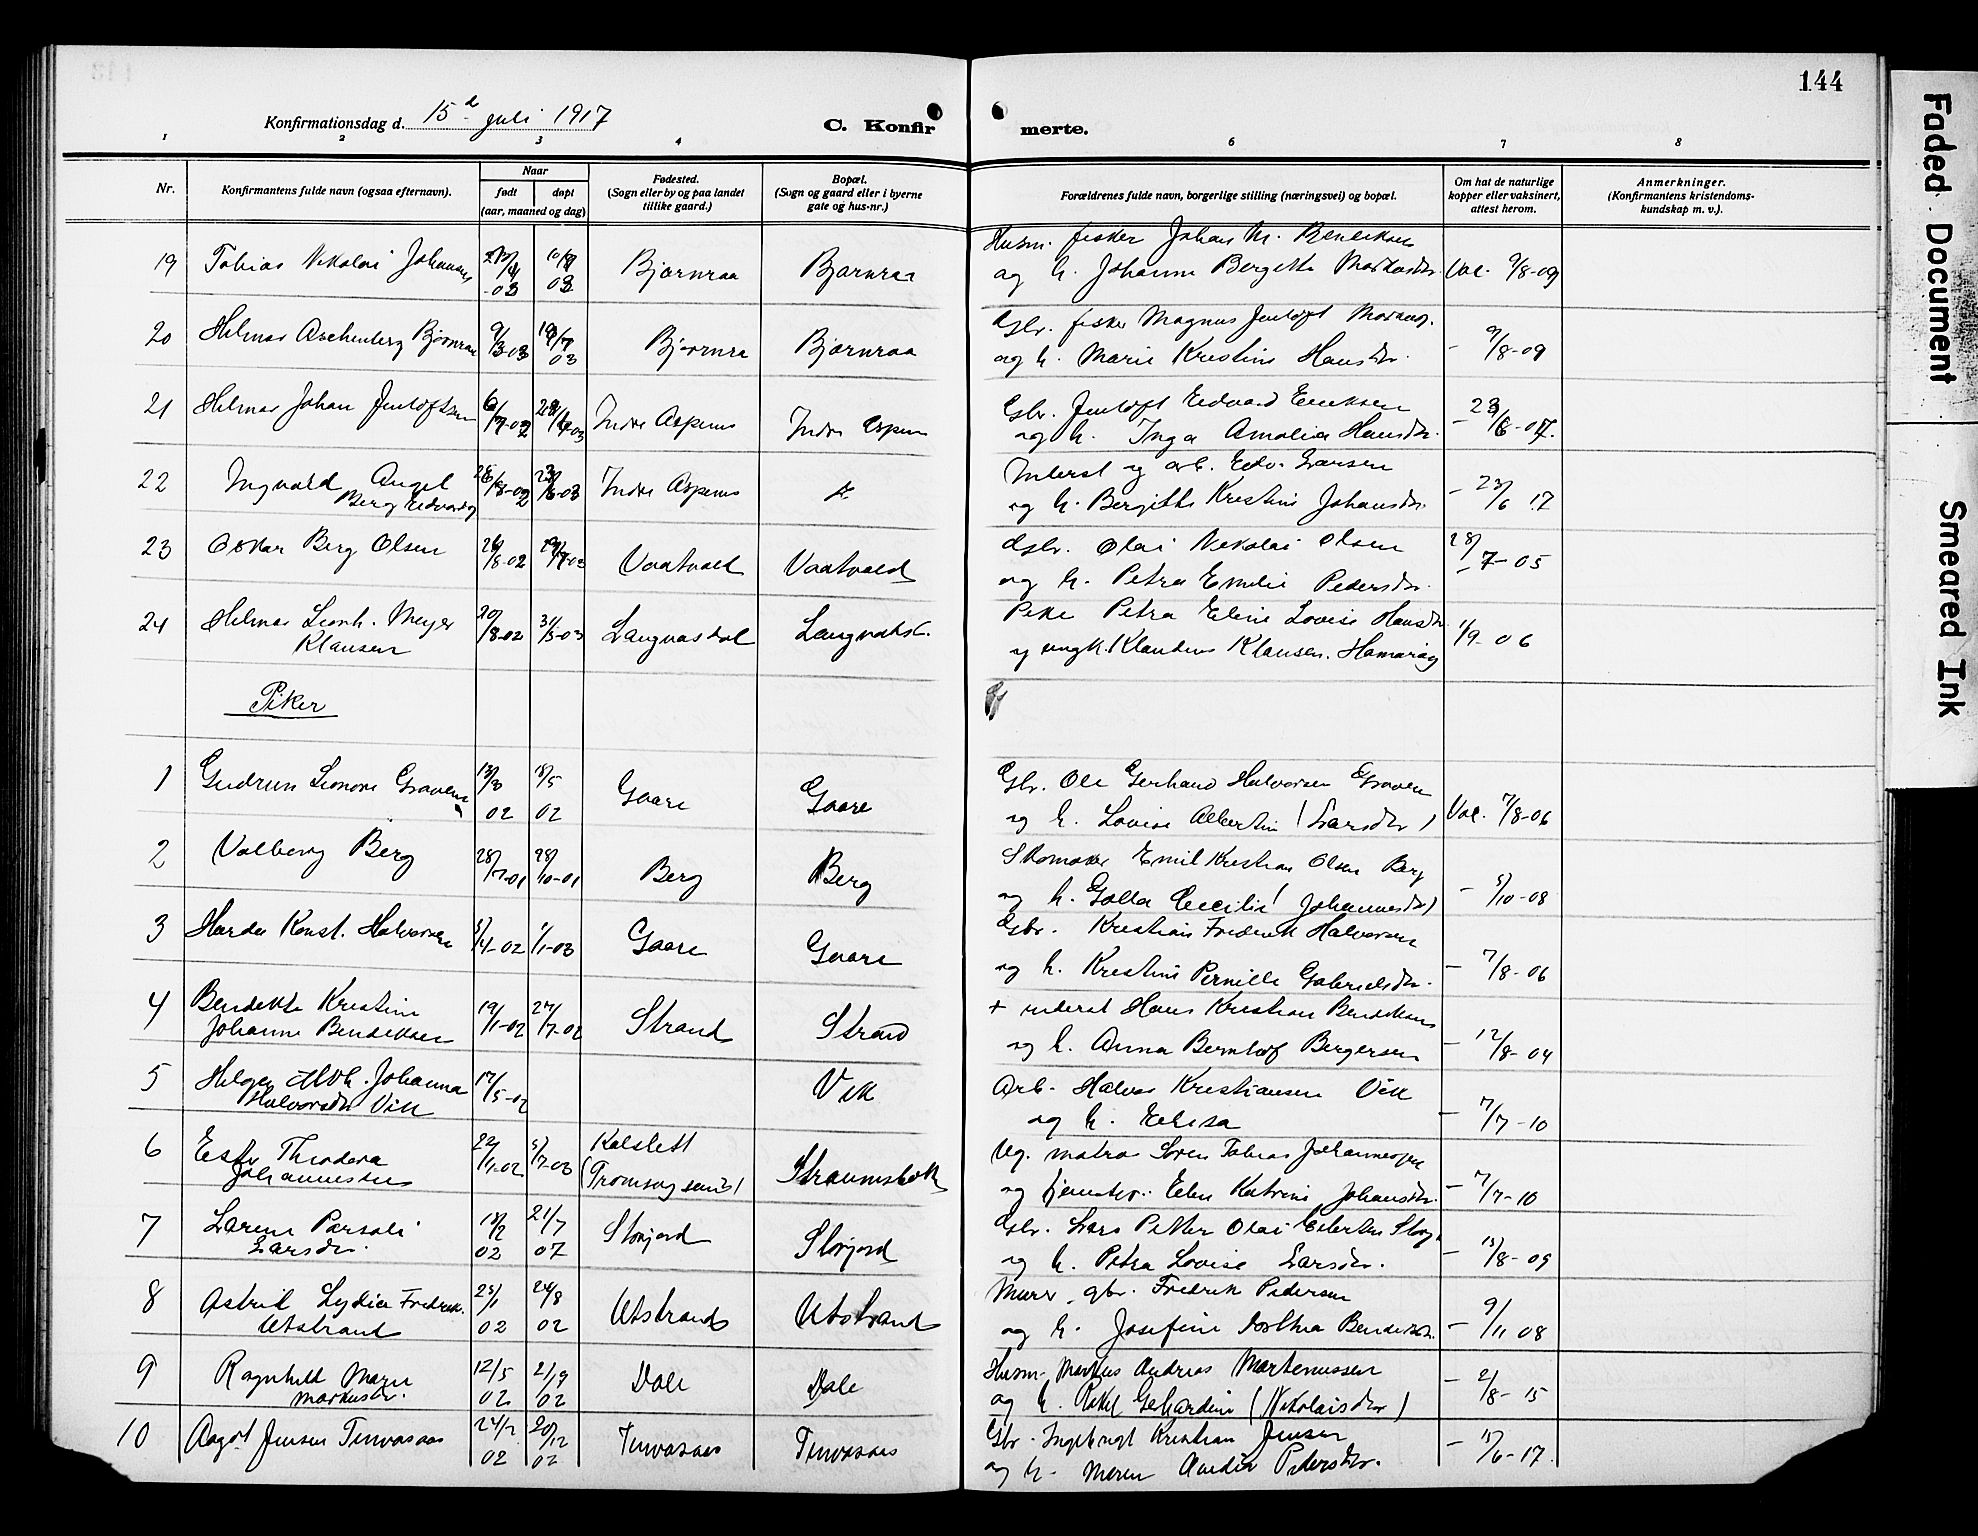 144
Konfirmationsdag d. 15de juli 1917
C. Konfirmerte.
1 2 3 4 5 6 7 8
Nr.
Konfirmantens fulde navn (ogsaa efternavn).
Naar
født døpt
(aar, maaned og dag)
Fødested.
(Sogn eller by og paa landet
tillike gaard.)
Bopæl.
(Sogn og gaard eller i byerne
gate og hus-nr.)
Forældrenes fulde navn, borgerlige stilling (næringsvei) og bopæl.
Om hat de naturlige
kopper eller vaksinert,
attest herom.
Anmerkninger.
(Konfirmantens kristendoms-
kundskap m. v.).
19 Tobias Nikolai Johansen Bjørnraa Bjørnraa Husm. fisker Johan M. Bendiksen
og h. Johanne Bergitte Vac. 9/8-09
20 Hilmar Aschenberg Bjørnraa 9/3-03 Bjørnraa Bjørnraa Gbr. fisker Magnus Jentoft
og h. Marie Kristine Hansdtr. - 9/8-09
21 Hilmar Johan Jentoftsen Indre Aspenes Indre Aspen Gbr. Jentoft Edvard Eriksen
og h. Inga Amalia Hansdtr.
22 Ingvald Angel
Berg Edvards Indre Aspenes Inderst og arb. Edv. Larsen
og h. Bergitte Kristine Johansdtr. - 23/6 17
23 Oskar Berg Olsen 26/8-02 Vaatvold Vaatvold Gbr. Olai Nikolai Olsen
og h. Petra Emelie Pedersdtr. 28/7-05
24 Hilmar Leonh. Meyer
Klausen 20/8-02 31/3-03 Langvasdal Pike Petra Eline Lovise Hansdtr.
og ungk. Klaudius Klausen. Hamarøy 1/9-06
Piker
1 Gudrun Leonore Graven 13/3 02 18/5 02 Gaare Gaare Gbr. Ole Gerhard Halvorsen Graven
og h. Lovise Albertine (Larsdtr) Vac. 7/8-06
2 Valborg Berg 28/7-01 28/10-01 Berg Berg Skomaker Emil Kristian Olsen Berg
og h. Golla Cecilie (Johannesdtr) - 5/10-08
3 Harda Konst. Halvorsen 5/4-02 1/1-03 Gaare Gaare Gbr. Kristian Fredrik Halvorsen
og h. Kristine Pernille Gabrielsdtr. - 7/8-06
4 Bendikte Kristine
Johanne Bendiksen 19/1-02 27/7-02 Strand Strand + inderst Hans Kristian Bendiksen
og h. Anna Berntof Bergersen - 12/8-04
5 Helger Johanna
Halvorsdtr Vik 17/5-02 Vik Arb. Halvor Kristiansen Vik
og h. Elisa - 7/7-10
6 Ester Theodora
Johannesdtr 22/11-02 5/7-03 Kalslett
(Tromsøysund) Straumsbotn Ug. matros Søren Tobias Johannessen
og tjenestep. Elen Katrine Johansdtr. - 7/7-10
7 Larene Parsali
Larsdtr. 02 21/7 07 Storjord Storjord Gbr. Lars Petter Olai Eilertsen
og h. Petra Lovise Larsdtr. - 13/8-09
8 Astrid Lydia Fredrik.
Utstrand 23/1 02 24/8 02 Utstrand Utstrand Murer, gbr. Fredrik Pedersen
og h. Josefine Dorthea - 9/11 08
9 Ragnhild Marie
Markusdtr. 12/5 02 21/9 02 Dale Dale Husm. Markus Andreas Martenussen
og h. Rakel Gehardine (Nikolaisdtr) - 2/8-15
10 Aagot Jensen Tinvasaas 24/7 02 20/12 02 Tinvasaas Tinvasaas Gbr. Ingebrigt Kristian Jensen
og h. Maren Andrea Pedersdtr. - 15/6-17
Faded Document
Smeared Ink